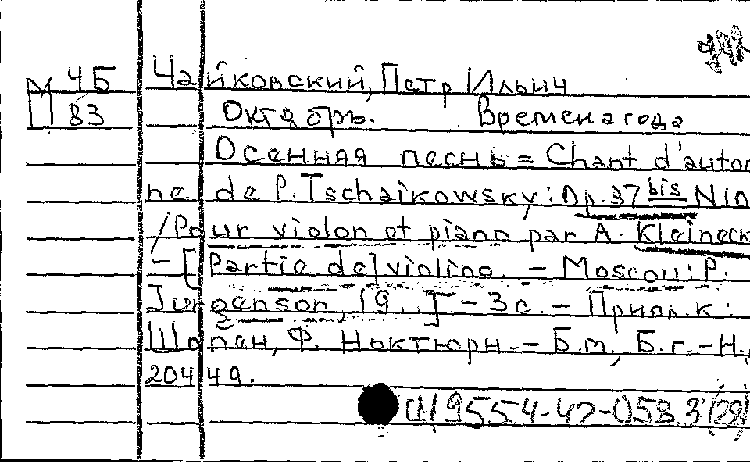 Ч5 Чайковский, Петр Ильич
М 83 Октябрь. Времена года
Осенняя песнь = Chant d'autom
ne / de P. Tschaikowsky: Op. 37 bis N10
/ Pour violon et piano par A. Kleineck
– [Partie de] violino. – Moscou: P.
Jurgenson, [19..] – 3с. – Прил. к:
Шопен, Ф. Ноктюрн. – Б.м., Б.г. – Н.
20449.
9554-42-058.3 (29)